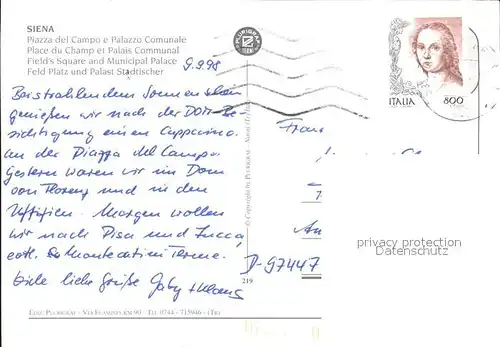 SIENA
Piazza del Campo e Palazzo Comunale
Place du Champ et Palais Communal
Field's Square and Municipal Palace
Feld Platz und Palast Städtischer
9.9.98
Bei strahlendem Sonnenschein
genießen wir nach der DOM-Be-
sichtigung einen Cappuccino
an der Piazza del Campo.
Gestern waren wir im Dom
von Florenz und in den
Uffizien. Morgen wollen
wir nach Pisa und Lucca,
evtl. Montecatini Terme.
Viele liebe Grüße Gaby + Klaus
PLURIGRAF
TERNI
© Copyright by PLURIGRAF
219
ITALIA 800
Frau
An
D-97447
privacy protection
Datenschutz
EDIZ. PLURIGRAF - VIA FLAMINIA KM 90 - TEL. 0744 - 715946 - (TR)